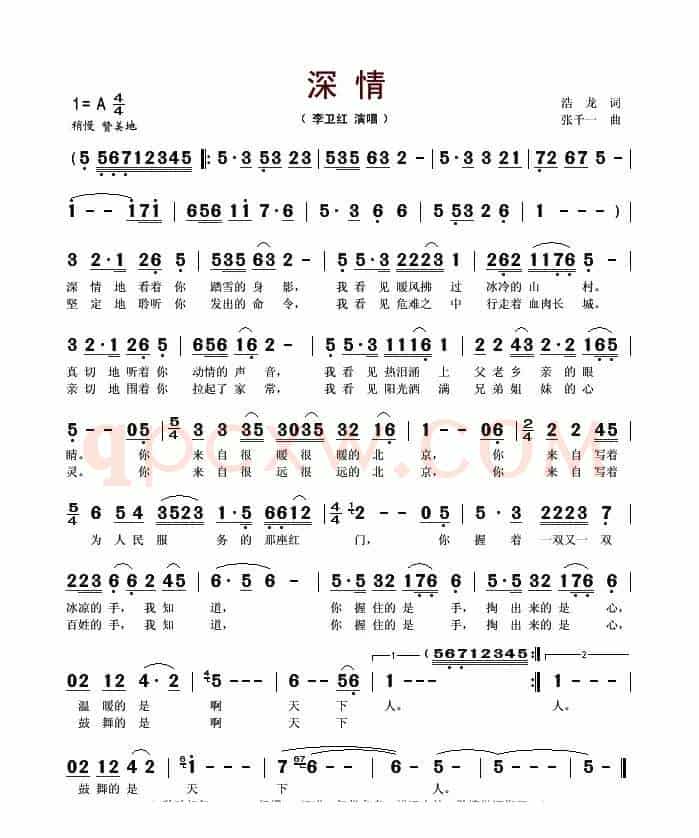 深 情
1= A 4/4
( 李卫红 演唱 )
浩 龙 词
稍慢 赞美地
张千一 曲
( 5 56712345 ‖: 5·3 53 23 | 535 63 2 | 5·3 2321 | 72 67 5 |
1 - - 171 | 656 11 7·6 | 5·3 6 6 | 5 53 2 6 | 1 - - ) |
3 2·1 26 5 | 535 63 2 - | 5 5·3 2223 1 | 262 1176 5 - |
深 情 地 看着 你 踏雪的 身 影, 我 看 见 暖风拂 过 冰冷的 山 村。
坚 定 地 聆听 你 发出的 命 令, 我 看 见 危难之 中 行走着 血肉长 城。
3 2·1 26 5 | 656 16 2 - | 5 5·3 1115 6 | 3 2 2 1 165 |
真 切 地 听着 你 动情的 声 音, 我 看 见 热泪涌 上 父 老 乡 亲 的 眼
亲 切 地 围着 你 拉起了 家 常, 我 看 见 阳光洒 满 兄 弟 姐 妹 的 心
5 - - 05 | 5/4 35 3035 3035 32 16 | 1 - - 06 | 2/4 2 2 45 |
睛。 你 来 自 很 暖 很 暖的 北 京, 你 来 自 写着
灵。 你 来 自 很 远 很 远的 北 京, 你 来 自 写着
5/4 6 54 3523 1·5 6612 | 4/4 2 - - 05 | 5·3 2223 7 |
为 人 民 服 务 的 那座红 门, 你 握 着 一双又一 双
223 6 6 2 45 | 6·5 6 0 | 5·5 32 176 6 | 5·5 32 176 6 |
冰凉的 手, 我 知 道, 你 握 住的 是 手, 掏 出 来的 是 心,
百姓的 手, 我 知 道, 你 握 住的 是 手, 掏 出 来的 是 心,
1
( 56712345 :‖
2
02 12 4·2 | 5 - - | 2 - 2 56 | 1 - - | 1 - - - |
温 暖的 是 啊 天 下 人。 人。
鼓 舞的 是 啊 天 下
02 12 4 2 | 1 - - | 5 - 7 6 - | 5 - - - | 5 - - - ‖
鼓 舞的 是 天 下 人。
qpcxw.COM